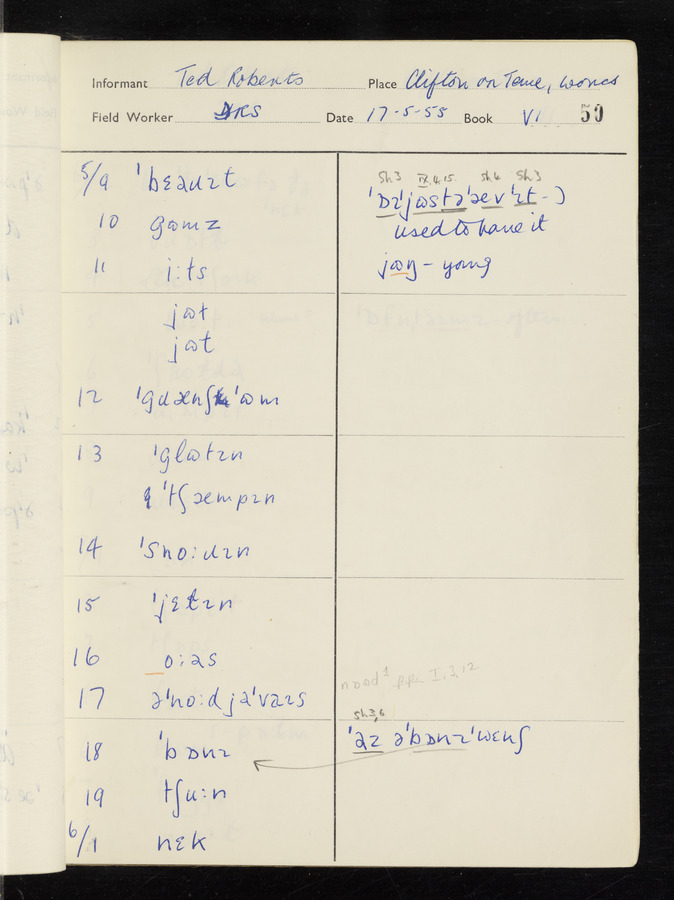 Informant Ted Roberts Place Clifton on Teme, Worcs
Field Worker DRS Date 17-5-55 Book VI 50
5/9 ˈbɛəɹɪt
10 gɷmz
11 j:ts
jɷt
jɷt
12 ˈgɹænʃ ˈɷm
13 ˈglɷtɪn
ˈtʃæmpɪn
14 ˈsno:ɹɪn
15 ˈjɛtɪn
16 o:əs
17 əˈno:d jəˈvaɪs
18 ˈbɒnɪ
19 tʃu:n
6/1 nɛk
sh3 IX.4.15. sh4 sh3
ˈɒɪˈjɷstəˈæv ˈɪt -)
used to have it
jɷŋ - young
nɒod¹ pp. I.3.12
sh3,6
ˈəz əˈbɒnɪˈwɛnʃ